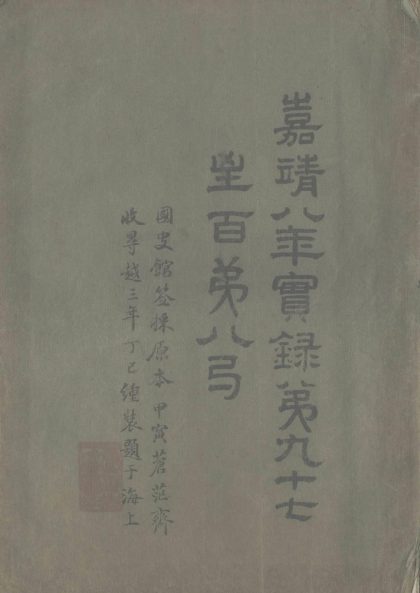 嘉靖八年實録第九十七
至百弟八弓
國史館簽揲原本甲寅蒼茫齋
收㝷越三年丁巳緟裝題于海上